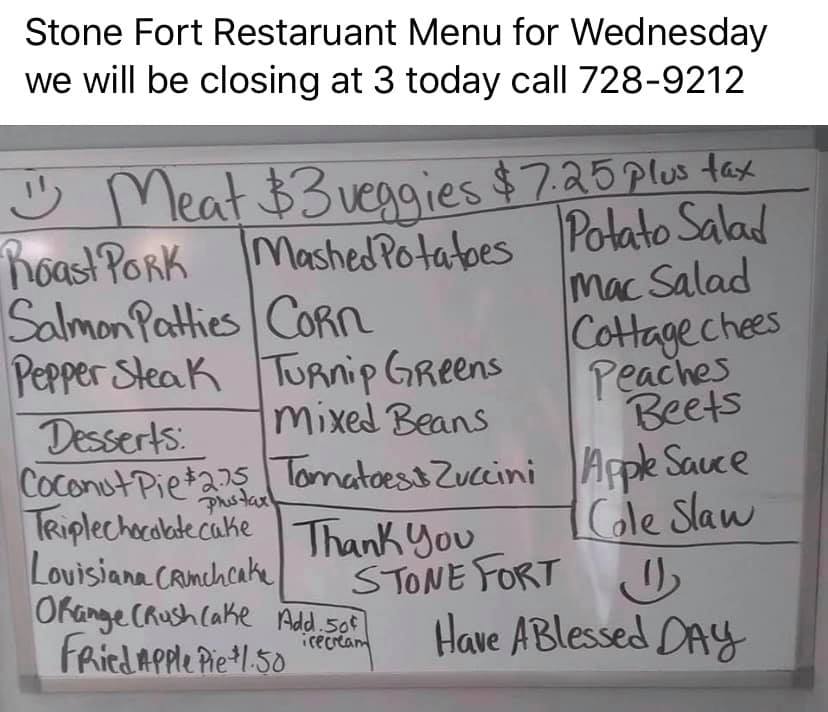 Stone Fort Restaruant Menu for Wednesday
we will be closing at 3 today call 728-9212
Meat $3 veggies $7.25 plus tax
Roast Pork
Salmon Patties
Pepper Steak
Desserts:
Coconut Pie $2.75
plus tax
Triplechocolate cake
Louisiana Crunch cake
Orange Crush Cake
Add .50¢
icecream
Fried Apple Pie $1.50
Mashed Potatoes
Corn
Turnip Greens
Mixed Beans
Tomatoes & Zuccini
Potato Salad
Mac Salad
Cottage chees
Peaches
Beets
Apple Sauce
Cole Slaw
Thank You
STONE FORT
Have A Blessed DAY